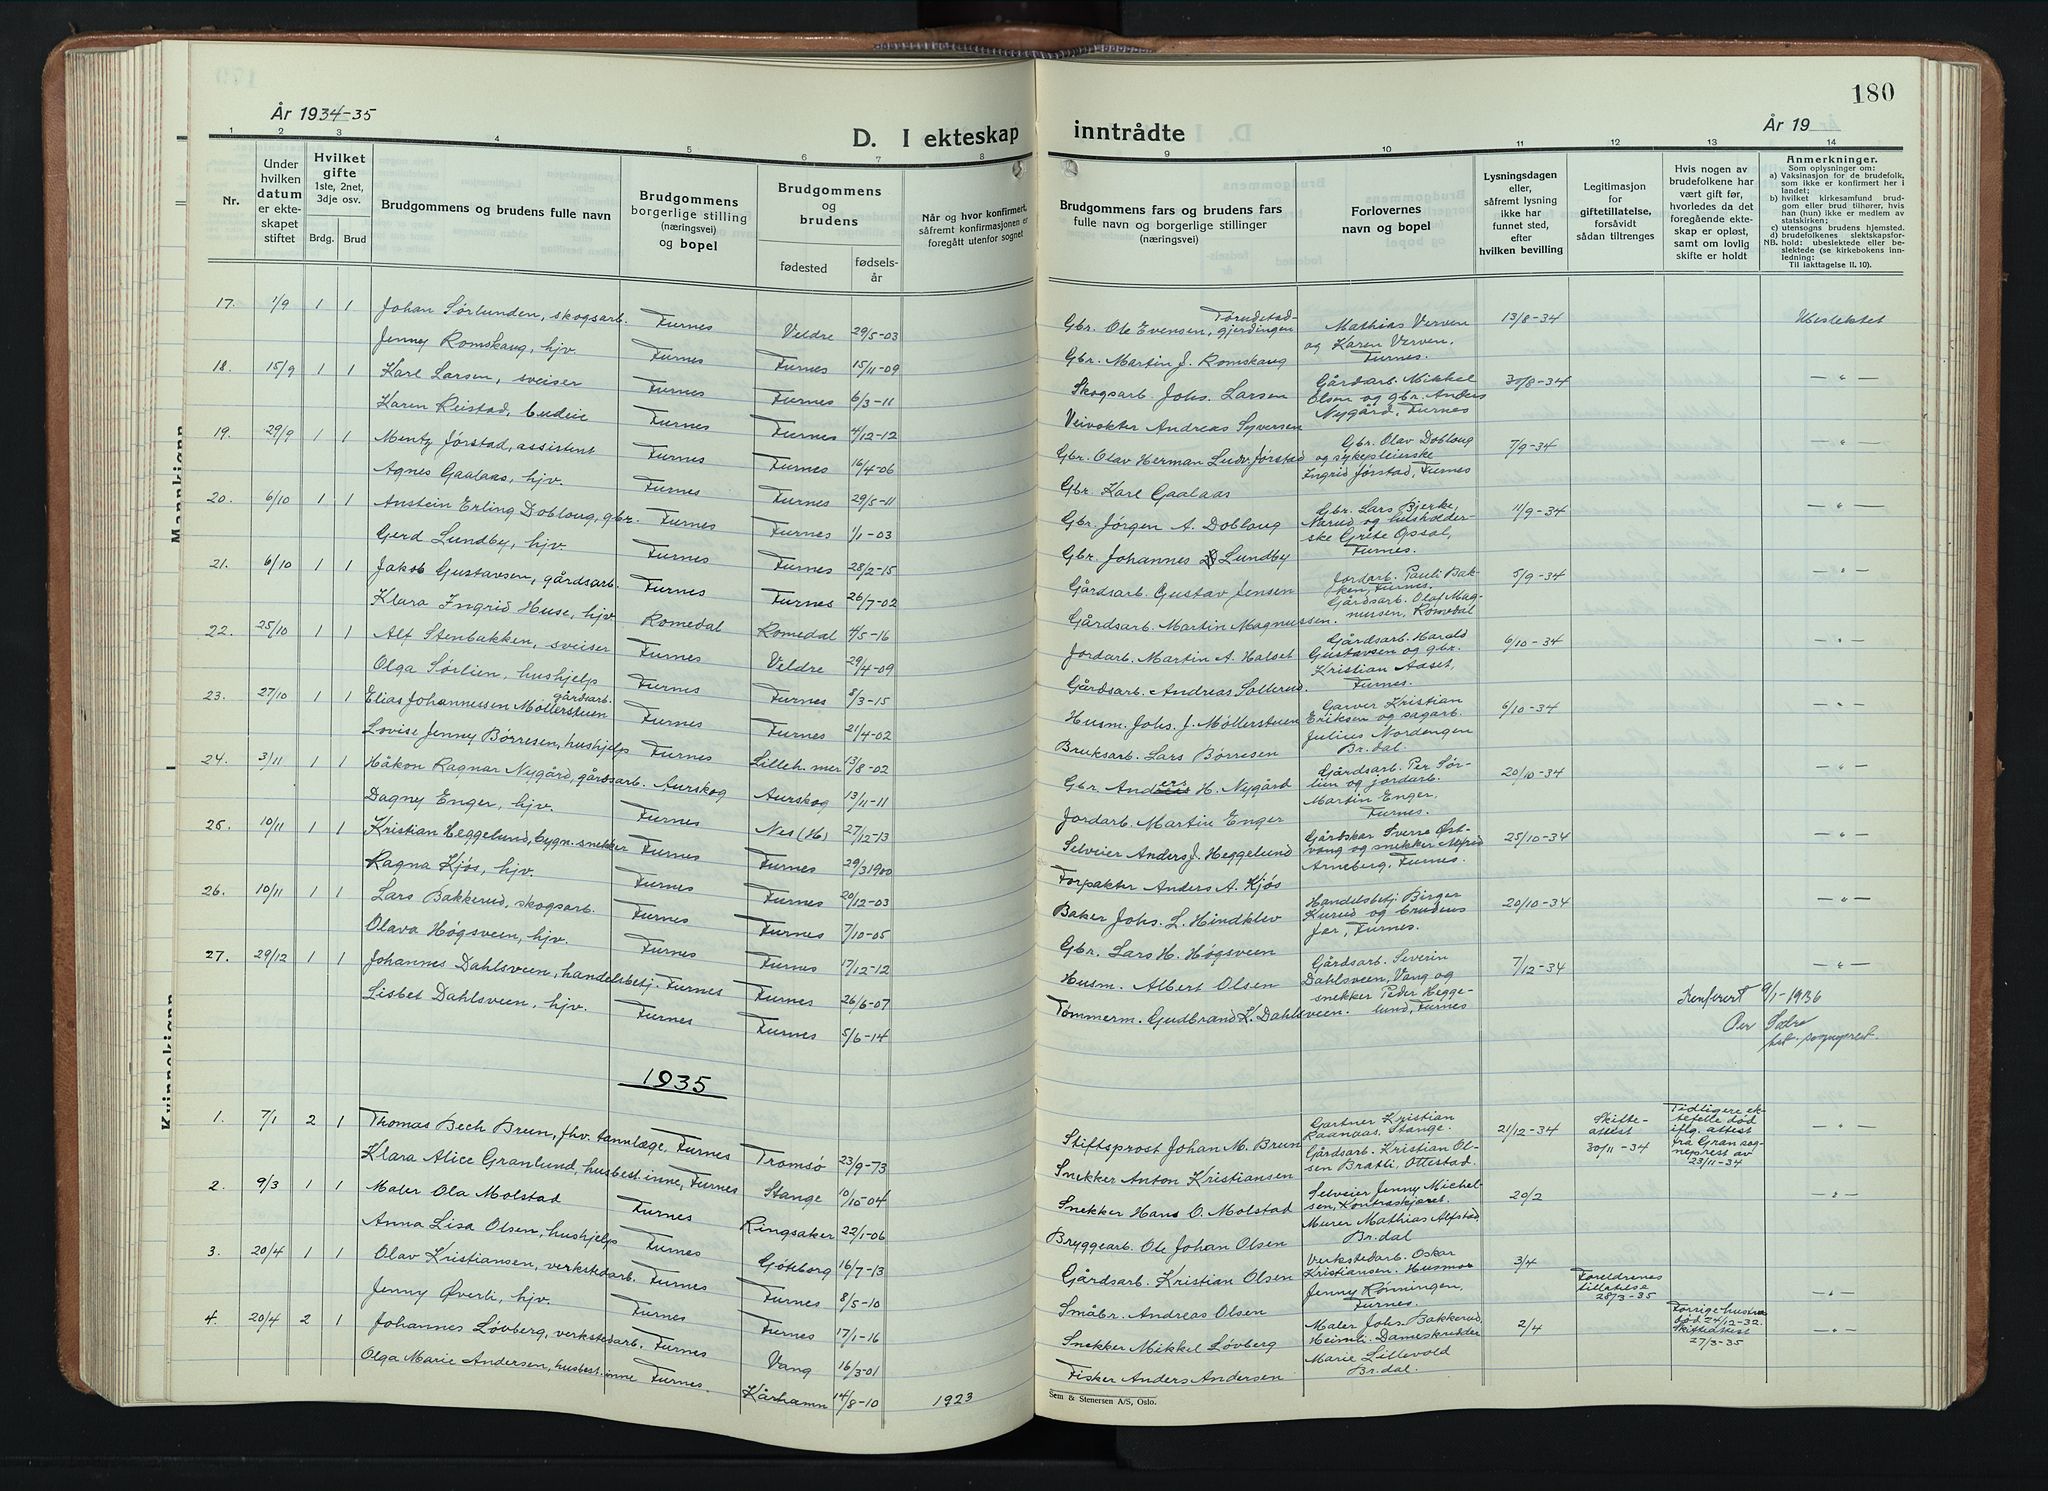 180
År 1934-35
D. I ekteskap inntrådte
År 19
1 2 3 4 5 6 7 8 9 10 11 12 13 14
Nr.
Under hvilken datum er ekteskapet stiftet
Hvilket gifte 1ste, 2net, 3dje osv.
Brdg. Brud
Brudgommens og brudens fulle navn
Brudgommens borgerlige stilling (næringsvei) og bopel
Brudgommens og brudens
fødested
fødselsår
Når og hvor konfirmert, såfremt konfirmasjonen er foregått utenfor sognet
Brudgommens fars og brudens fars fulle navn og borgerlige stillinger (næringsvei)
Forlovernes navn og bopel
Lysningsdagen eller, såfremt lysning ikke har funnet sted, efter hvilken bevilling
Legitimasjon for giftetillatelse, forsåvidt sådan tiltrenges
Hvis nogen av brudefolkene har vært gift før, hvorledes da det foregående ekteskap er opløst, samt om lovlig skifte er holdt
Anmerkninger.
Som oplysninger om:
a) Vaksinasjon for de brudefolk, som ikke er konfirmert her i landet;
b) hvilket kirkesamfund brudgom eller brud tilhører, hvis han (hun) ikke er medlem av statskirken;
c) utensogns brudens hjemsted.
d) brudefolkenes slektskapsforhold: ubeslektede eller beslektede (se kirkebokens innledning:
NB. Til iakttagelse II. 10).
17. 1/9 1 1 Johan Sørlunden, skogsarb. Furnes Veldre 29/5-03 Gbr. Ole Evensen, Torudstadgjerdingen Mathias Verven og Karen Verven, Furnes. 13/8-34 Ubeslektet
Jenny Romskaug, hjv. Furnes Furnes 15/11-09 Gbr. Martin J. Romskaug
18. 15/9 1 1 Karl Larsen, sveiser Furnes Furnes 6/3-11 Skogsarb. Johs. Larsen Gårdsarb. Mikkel Olsen og gbr. Anders Nygård, Furnes 30/8-34 — " —
Karen Reistad, budeie Furnes Furnes 4/12-12 Veivokter Andreas Syversen
19. 29/9 1 1 Mentz Jørstad, assistent Furnes Furnes 16/4-06 Gbr. Olav Herman Ludv. Jørstad Gbr. Olav Dobloug og sykepleierske Ingrid Jørstad, Furnes 7/9-34 — " —
Agnes Gaalaas, hjv. Furnes Furnes 29/5-11 Gbr. Karl Gaalaas
20. 6/10 1 1 Anstein Erling Dobloug, gbr. Furnes Furnes 1/1-03 Gbr. Jørgen A. Dobloug Gbr. Lars Bjerke, Narud og husholderske Grete Opsal, Furnes. 11/9-34 — " —
Gerd Lundby, hjv. Furnes Furnes 28/2-15 Gbr. Johannes Lundby
21. 6/10 1 1 Jakob Gustavsen, gårdsarb. Furnes Furnes 26/7-02 Gårdsarb. Gustav Jensen Jordarb. Pauli Bakken, Furnes. Gårdsarb. Olaf Magnussen, Romedal 5/9-34 — " —
Klara Ingrid Huse, hjv Romedal Romedal 4/5-16 Gårdsarb. Martin Magnussen.
22. 25/10 1 1 Alf Stenbakken, sveiser Furnes Veldre 29/4-09 Jordarb. Martin A. Halset Gårdsarb. Harald Gustavsen og gbr. Kristian Aaset, Furnes. 6/10-34 — " —
Olga Sørlien, hushjelp Furnes Furnes 8/3-15 Gårdsarb. Andreas Sollerud.
23. 27/10 1 1 Elias Johannessen Møllerstuen gårdsarb. Furnes Furnes 21/4-02 Husm. Johs. J. Møllerstuen Garver Kristian Eriksen og sagarb. Julius Nordengen Br.dal. 6/10-34 — " —
Lovise Jenny Børresen, hushjelp Furnes Lilleh.mer 13/8-02 Bruksarb. Lars Børresen
24. 3/11 1 1 Håkon Ragnar Nygård, gårdsarb. Aurskog Aurskog 13/11-11 Gbr. Anders H. Nygård Gårdsarb. Per Sørlien og jordarb. Martin Enger, Furnes. 20/10-34 — " —
Dagny Enger, hjv. Furnes Nes (H) 27/12-13 Jordarb. Martin Enger
25. 10/11 1 1 Kristian Heggelund, bygn.snekker Furnes Furnes 29/3 1900 Selveier Anders J. Heggelund Gårdskar Sverre Østvang og snekker Alfred Arneberg, Furnes. 25/10-34 — " —
Ragna Kjøs, hjv. Furnes Furnes 20/12-03 Forpakter Anders A. Kjøs
26. 10/11 1 1 Lars Bakkerud, skogsarb. Furnes Furnes 7/10-05 Baker Johs. L. Hindklev Handelsbetj. Birger Kurud og brudens far, Furnes. 20/10-34 — " —
Olava Høgsveen, hjv. Furnes Furnes 17/12-12 Gbr. Lars H. Høgsveen
27. 29/12 1 1 Johannes Dahlsveen, handelsbetj. Furnes Furnes 26/6-07 Husm. Albert Olsen Gårdsarb. Severin Dahlsveen, Vang og snekker Peder Heggelund, Furnes 7/12-34 — " —
Lisbet Dahlsveen, hjv. Furnes Furnes 5/6-14 Tømmerm. Gudbrand K. Dahlsveen.
Konferert 9/1-1936
Per Sælre
hst. sogneprest.
1935
1. 7/1 2 1 Thomas Bech Brun, fhv. tannlæge, Furnes Tromsø 23/9-73 Stiftsprost Johan M. Brun Gartner Kristian Raanaas, Stange. Gårdsarb. Kristian Olsen Bratli, Ottestad. 21/12-34 Skifteattest 30/11-34 Tidligere ektefelle død iflg. attest fra Gran sogneprest av 23/11-34 — " —
Klara Alice Granlund, husbest.inne, Furnes Stange 10/10-04 Snekker Anton Kristiansen
2. 9/3 1 1 Maler Ola Molstad Furnes Ringsaker 22/1-06 Snekker Hans O. Molstad Selveier Jenny Michelsen, Kontraskjæret. Murer Mathias Alfstad, Br.dal 20/2 — " —
Anna Lisa Olsen, hushjelp Furnes Göteborg 16/7-13 Bryggearb. Ole Johan Olsen
3. 20/4 1 1 Olav Kristiansen, verkstedarb. Furnes Furnes 8/5-10 Gårdsarb. Kristian Olsen Verkstedarb. Oskar Kristiansen. Husmor Jenny Rønningen, Furnes. 3/4 Foreldrenes tillatelse 28/3-35 — " —
Jenny Øverli, hjv. Furnes Furnes 17/1-16 Småbr. Andreas Olsen
4. 20/4 2 1 Johannes Løvberg, verkstedarb. Furnes Vang 16/3-01 Snekker Mikkel Løvberg Maler Johs. Bakkerud, Heimli. Dameskredder Marie Lillevold Br.dal. 2/4 Forrige hustru død 24/12-32. Skifteattest 27/3-35 — " —
Olga Marie Andersen, husbest.inne Furnes. Kårhamn 14/8-10 1923 Fisker Anders Andersen
Sem & Stenersen A/S, Oslo.
Mannkjønn
Kvinnekjønn